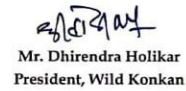 Mr. Dhirendra Holikar
President, Wild Konkan